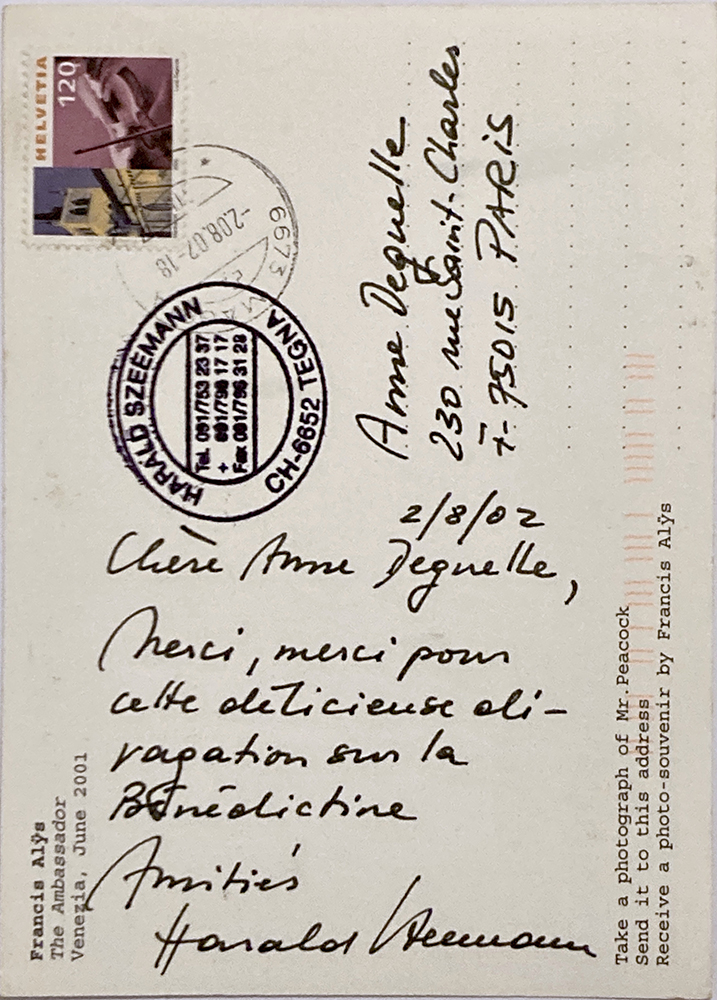 HELVETIA
120
6673
-2.08.02-18
HARALD SZEEMANN
CH-6652 TEGNA
Tel. 091/753 23 37
+ 091/796 17 17
Fax 091/796 31 29
Anne Deguelle
230 rue Saint-Charles
F- 75015 PARIS
2/8/02
Chère Anne Deguelle,
Merci, merci pour
cette délicieuse di-
vagation sur la
Bénédictine
Amitiés
Harald Szeemann
Francis Alÿs
The Ambassador
Venezia, June 2001
Take a photograph of Mr.Peacock
Send it to this address
Receive a photo-souvenir by Francis Alÿs